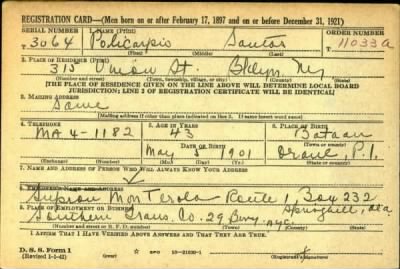 REGISTRATION CARD—(Men born on or after February 17, 1897 and on or before December 31, 1921)
SERIAL NUMBER 1. NAME (Print) ORDER NUMBER
T 3064 Policarpio Santos 11033a
(First) (Middle) (Last)
2. PLACE OF RESIDENCE (Print)
315 Union St. Bklyn NY
(Number and street) (Town, township, village, or city) (County) (State)
[THE PLACE OF RESIDENCE GIVEN ON THE LINE ABOVE WILL DETERMINE LOCAL BOARD
JURISDICTION; LINE 2 OF REGISTRATION CERTIFICATE WILL BE IDENTICAL]
3. MAILING ADDRESS
Same
[Mailing address if other than place indicated on line 2. If same insert word same]
4. TELEPHONE 5. AGE IN YEARS 6. PLACE OF BIRTH
MA 4-1182 43 Bataan
DATE OF BIRTH (Town or county)
May 5 1901 P.I.
(Exchange) (Number) (Mo.) (Day) (Yr.) (State or country)
7. NAME AND ADDRESS OF PERSON WHO WILL ALWAYS KNOW YOUR ADDRESS
EMPLOYER'S NAME AND ADDRESS
Route 1, Box 232
PLACE OF EMPLOYMENT OR BUSINESS
Southern Trans. Co. 29 Bwy. NYC
(Number and street or R. F. D. number) (Town) (County) (State)
I AFFIRM THAT I HAVE VERIFIED ABOVE ANSWERS AND THAT THEY ARE TRUE.
D. S. S. Form 1
(Revised 1-1-42) GPO 16-21630-1 (Registrant's signature)